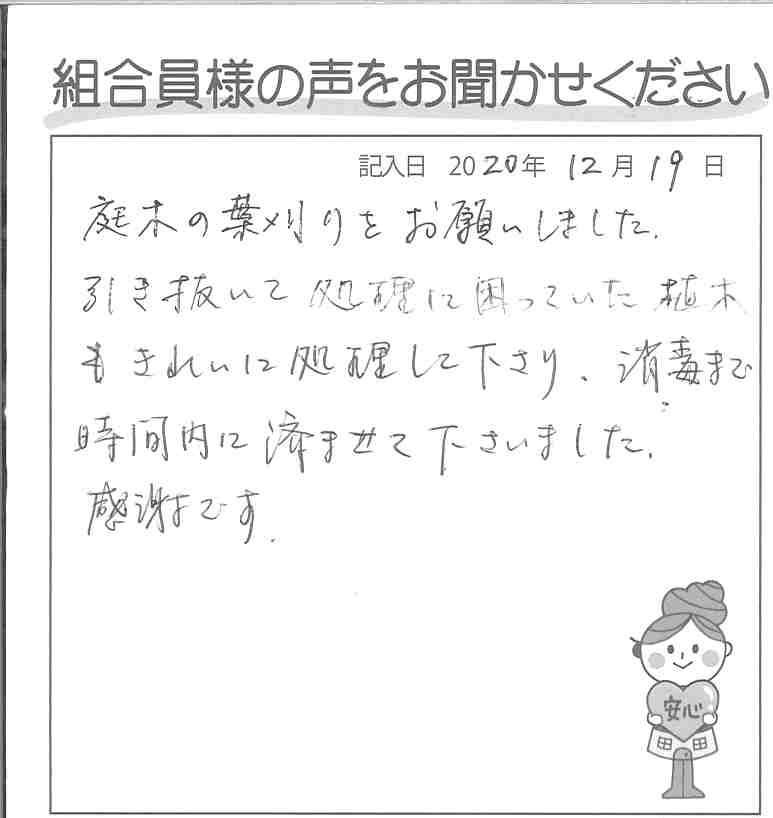 組合員様の声をお聞かせください
記入日 2020年 12月19日
庭木の葉刈りをお願いしました.
引き抜いて処理に困っていた植木
もきれいに処理して下さり、消毒まで
時間内に済ませて下さいました.
感謝です.
安心